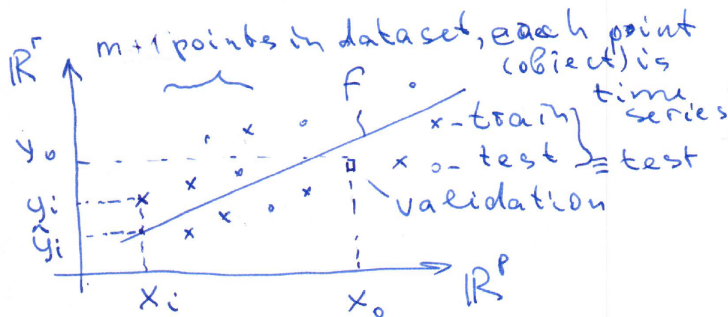 m+1 pointes in dataset, each point
(object) is
time
series
ℝʳ
f
x - train
y₀
x o - test ≡ test
yᵢ
validation
ŷᵢ
xᵢ
x₀
ℝᵖ